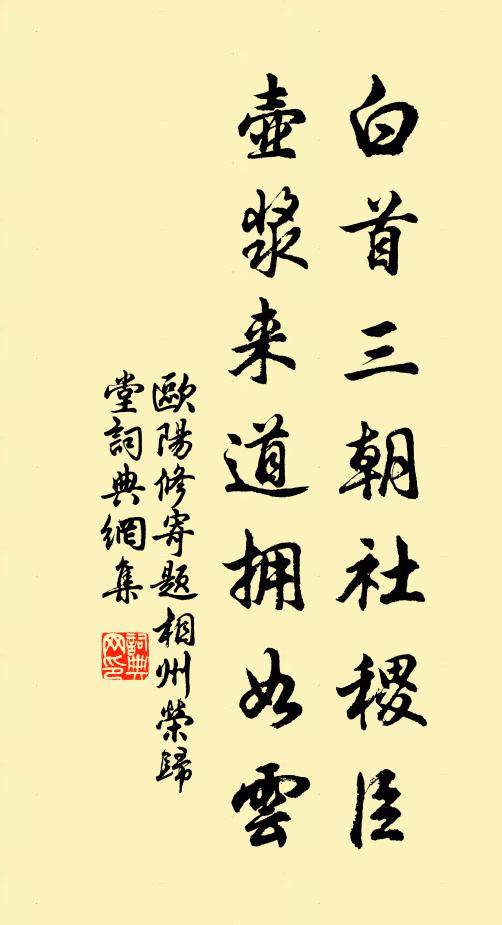 白首三朝社稷臣
壺漿来道拥如雲
歐陽修寄題相州榮歸
堂詞典網集
詞典
网印